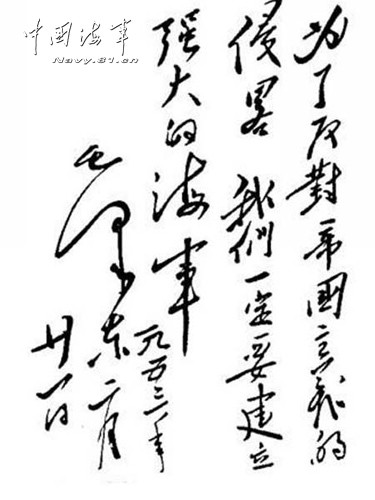 中国海軍
Navy.81.cn
为了反對帝國主義的
侵畧 我們一定要建立
强大的海軍
一九五三年
毛泽东 二月
廿一日